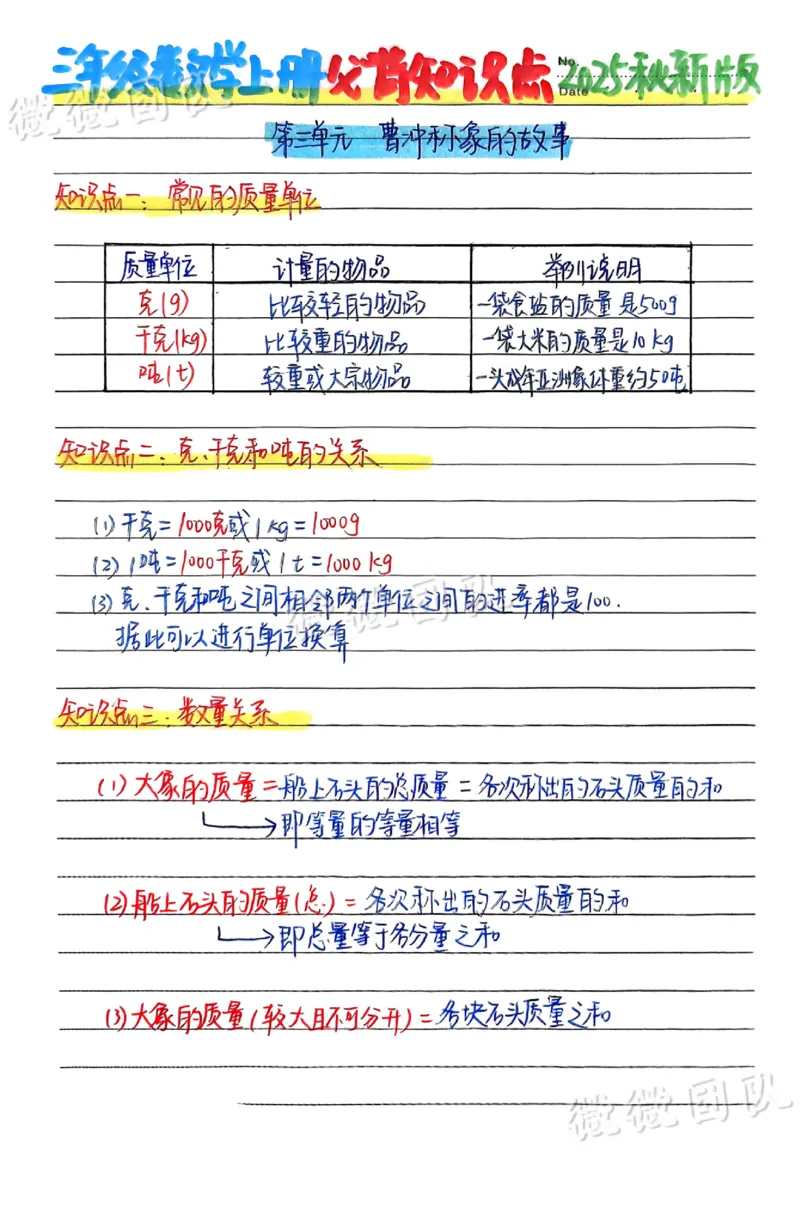 三年级数学上册必背知识点 No. Date 2025秋新版
微微团队
第三单元 曹冲称象的故事
知识点一：常见的质量单位
质量单位 计量的物品 举例说明
克(g) 比较轻的物品 一袋食盐的质量是500g
千克(kg) 比较重的物品 一袋大米的质量是10kg
吨(t) 较重或大宗物品 一头成年亚洲象体重约50吨
知识点二：克、千克和吨的关系
(1)千克=1000克或1kg=1000g
(2)1吨=1000千克或1t=1000kg
(3)克、千克和吨之间相邻两个单位之间的进率都是100.
微微团队
据此可以进行单位换算
知识点三：数量关系
(1)大象的质量=船上石头的总质量=各次称出的石头质量的和
即等量的等量相等
(2)船上石头的质量(总)=各次称出的石头质量的和
即总量等于各分量之和
(3)大象的质量(较大且不可分开)=各块石头质量之和
微微团队